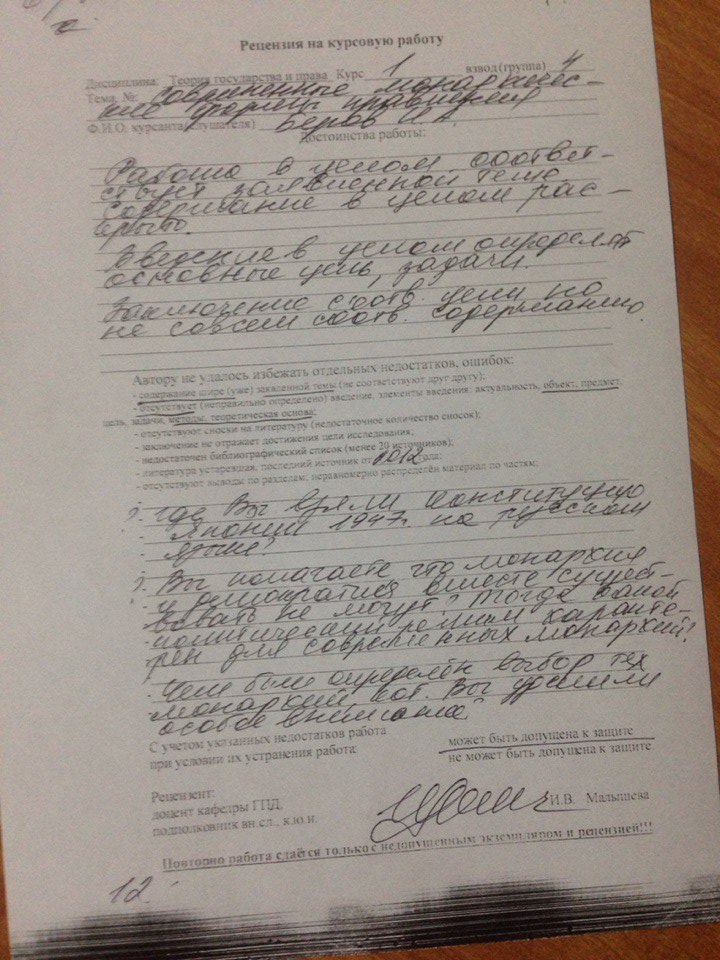 Рецензия на курсовую работу
Дисциплина: Теория государства и права Курс 1 взвод (группа) 4
Тема №: Современные монархичес-
кие формы правления
Ф.И.О. курсанта (слушателя) Беров И.А.
Достоинства работы:
Работа в целом соответ-
ствует заявленной теме
содержание в целом рас-
крыто.
Введение в целом определяет
основные цель, задачи.
Заключение соотв. цели но
не совсем соотв. содержанию.
Автору не удалось избежать отдельных недостатков, ошибок:
- содержание шире (уже) заявленной темы (не соответствуют друг другу);
- отсутствует (неправильно определено) введение, элементы введения: актуальность, объект, предмет,
цель, задачи, методы, теоретическая основа;
- отсутствуют сноски на литературу (недостаточное количество сносок);
- заключение не отражает достижения цели исследования;
- недостаточен библиографический список (менее 20 источников);
- литература устаревшая, последний источник от 2012 года;
- отсутствуют выводы по разделам; неравномерно распределён материал по частям;
? - где Вы взяли Конституцию
- Японии 1947г. на русском
- языке?
? - Вы полагаете что монархия
- и демократия вместе сущест-
вовать не могут? Тогда какой
- политический режим характе-
рен для современных монархий?
- Чем был определён выбор тех
монархий, кот. Вы уделили
особое внимание?
С учетом указанных недостатков работа
при условии их устранения работа:
может быть допущена к защите
не может быть допущена к защите
Рецензент:
доцент кафедры ГПД,
подполковник вн.сл., к.ю.н.
И.В. Малышева
Повторно работа сдаётся только с недопущенным экземпляром и рецензией!!!
12.